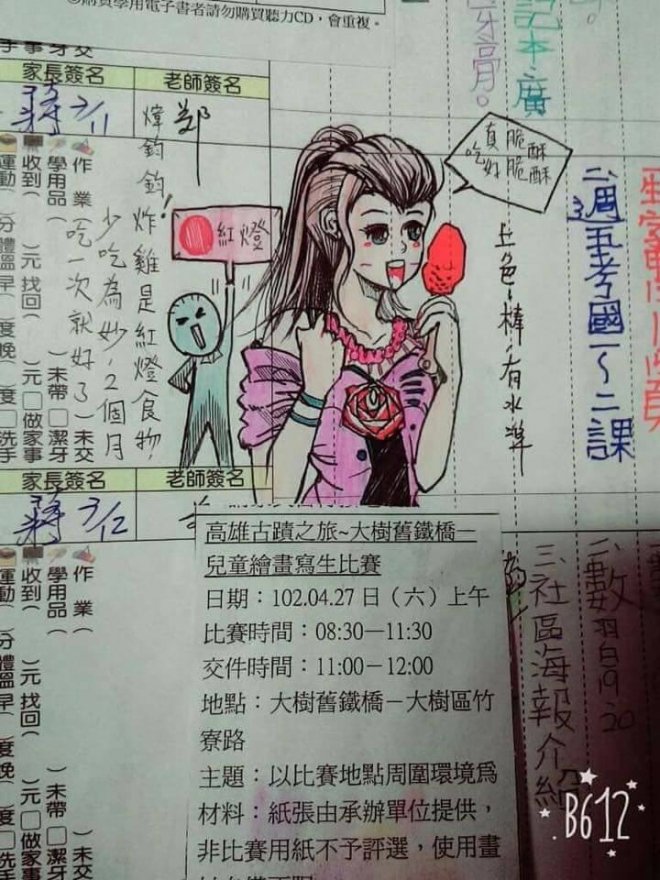 ③購買學用電子書者請勿購買聽力CD，會重複。
記本、廣
牙膏。
家長簽名
老師簽名
蔣 3/11
鄭
作業
學用品
收到
運動
元 找回
分 體溫 早
未帶
元 做家事
度 晚
未交
潔牙
度 洗手
煒鈞鈞！炸雞是紅燈食物
少吃為妙，2個月
吃一次就好了
紅燈
酥酥脆脆真
好吃
上色、棒、有水準
二、週五考國一～二課
家長簽名
老師簽名
蔣 3/12
作業
學用品
收到
運動
元 找回
分 體溫 早
未帶
元 做家事
度 晚
未交
潔牙
度 洗手
高雄古蹟之旅~大樹舊鐵橋－
兒童繪畫寫生比賽
日期：102.04.27日（六）上午
比賽時間：08:30－11:30
交件時間：11:00－12:00
地點：大樹舊鐵橋－大樹區竹
寮路
主題：以比賽地點周圍環境為
材料：紙張由承辦單位提供，
非比賽用紙不予評選，使用畫
二、數習白19.20
三、社區海報介紹
B612